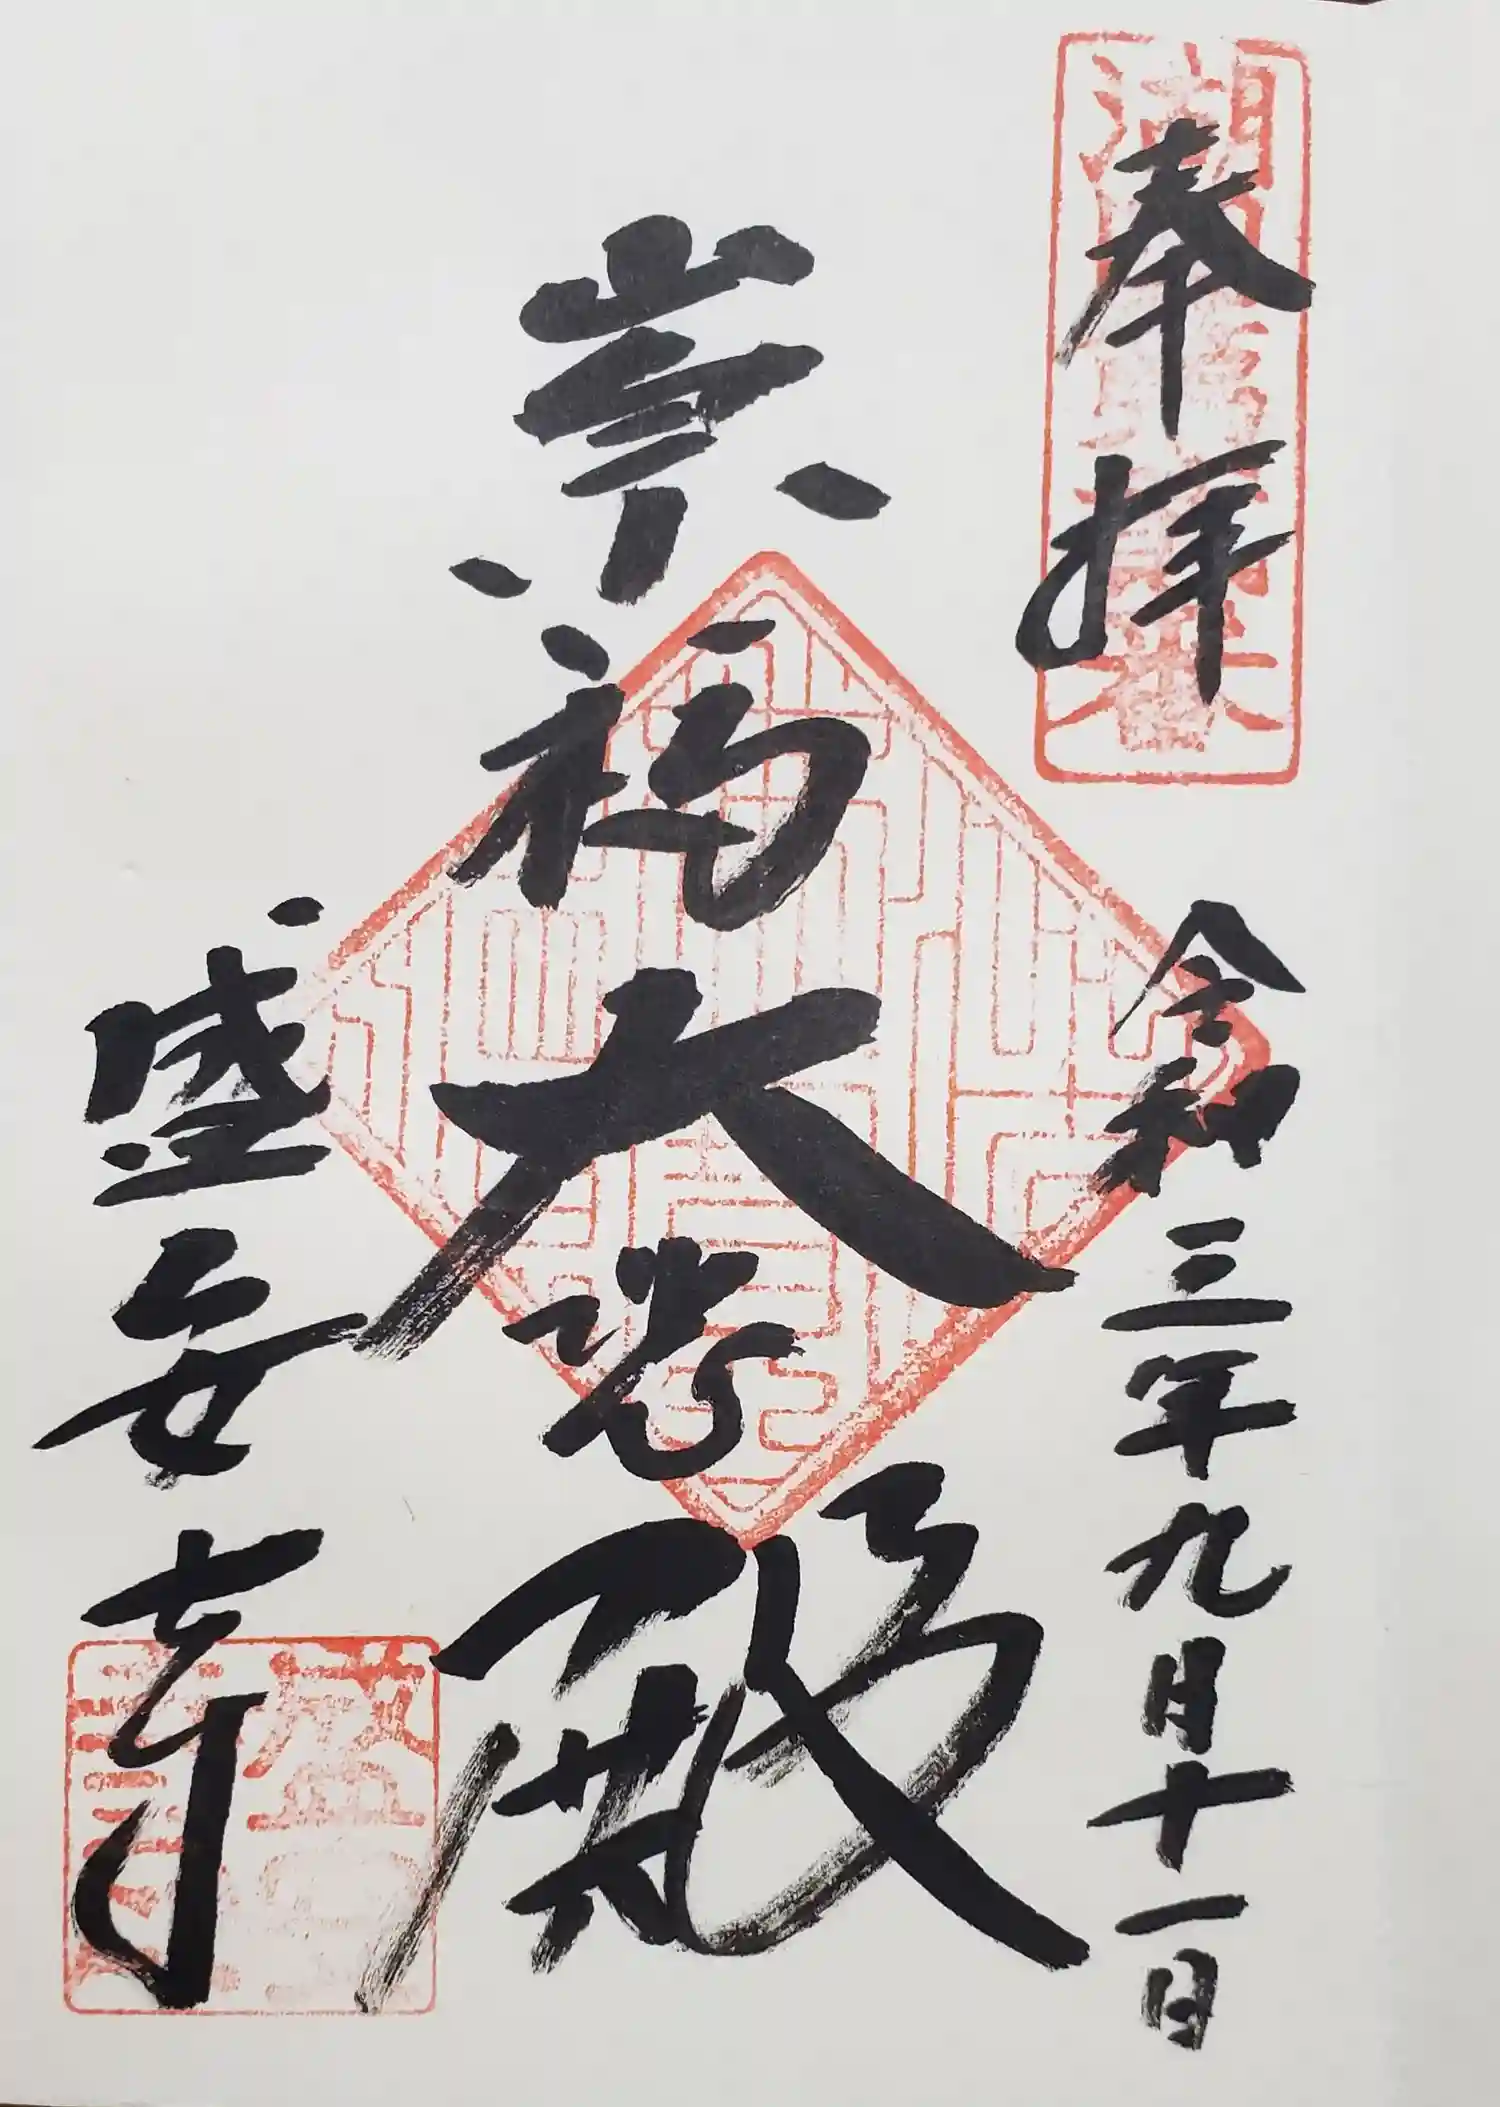 奉拝
令和三年九月十一日
崇福大悲殿
盛安寺